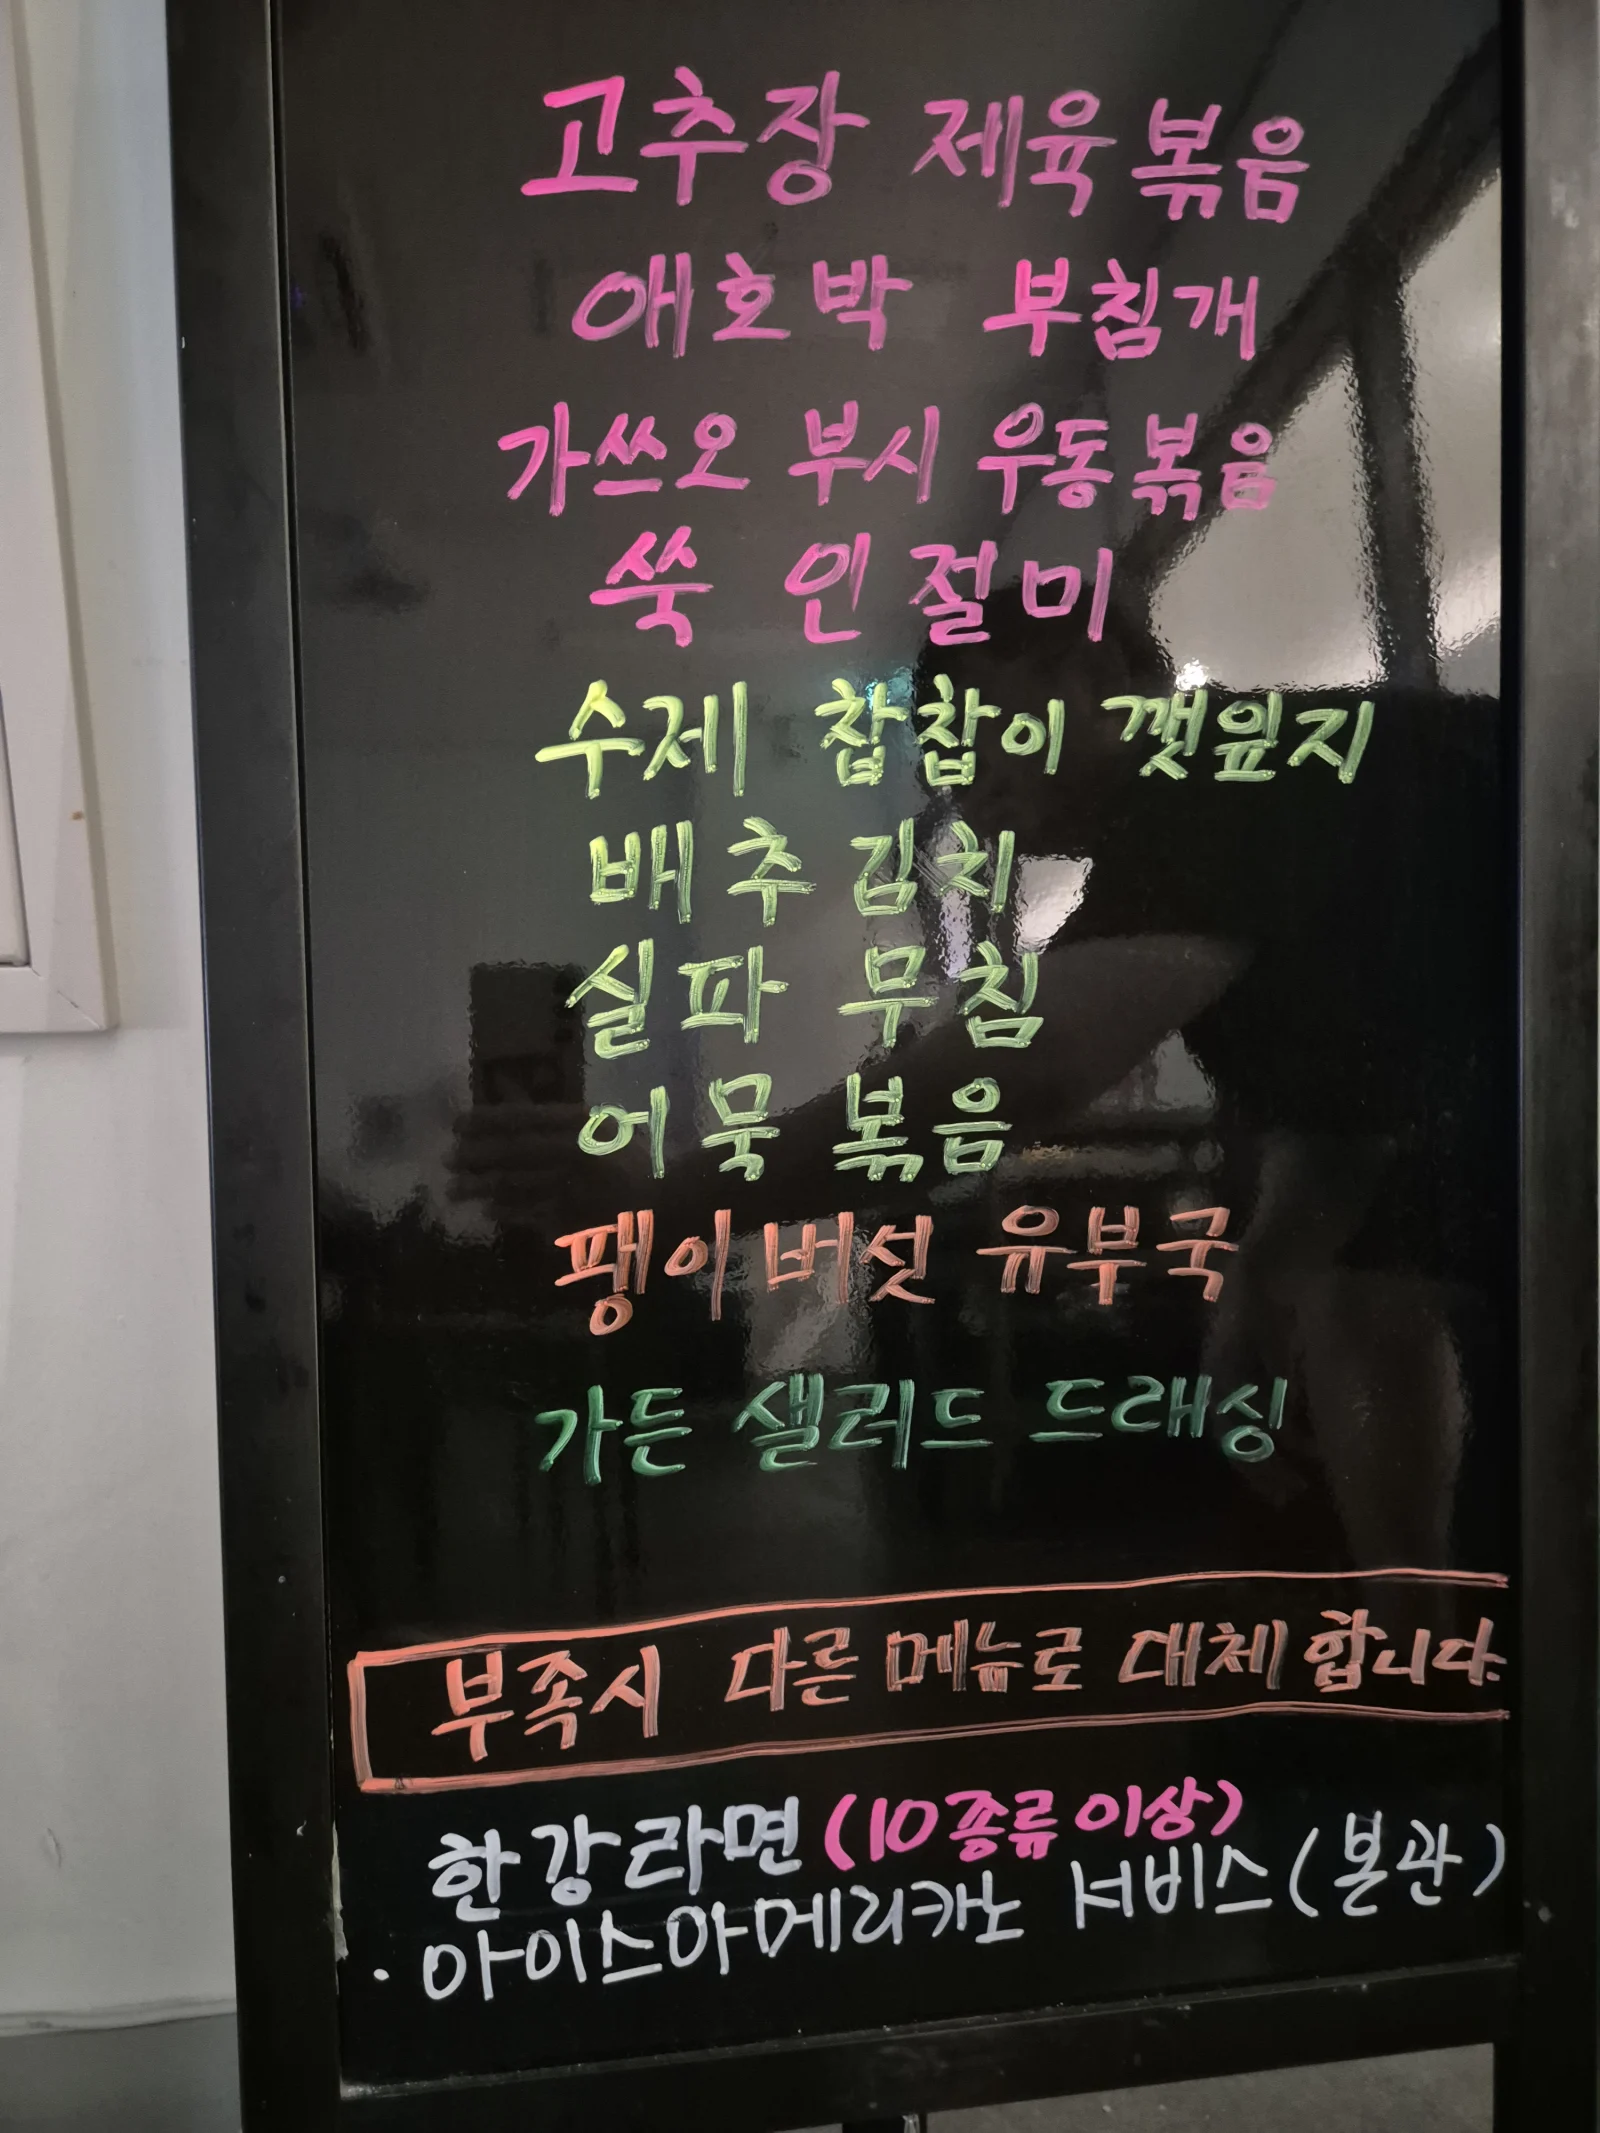 고추장 제육볶음
애호박 부침개
가쓰오 부시 우동볶음
쑥 인절미
수제 찹찹이 깻잎지
배추김치
실파 무침
어묵 볶음
팽이버섯 유부국
가든 샐러드 드래싱
부족시 다른 메뉴로 대체 합니다.
한강라면 (10종류이상)
· 아이스아메리카노 서비스 (본관)